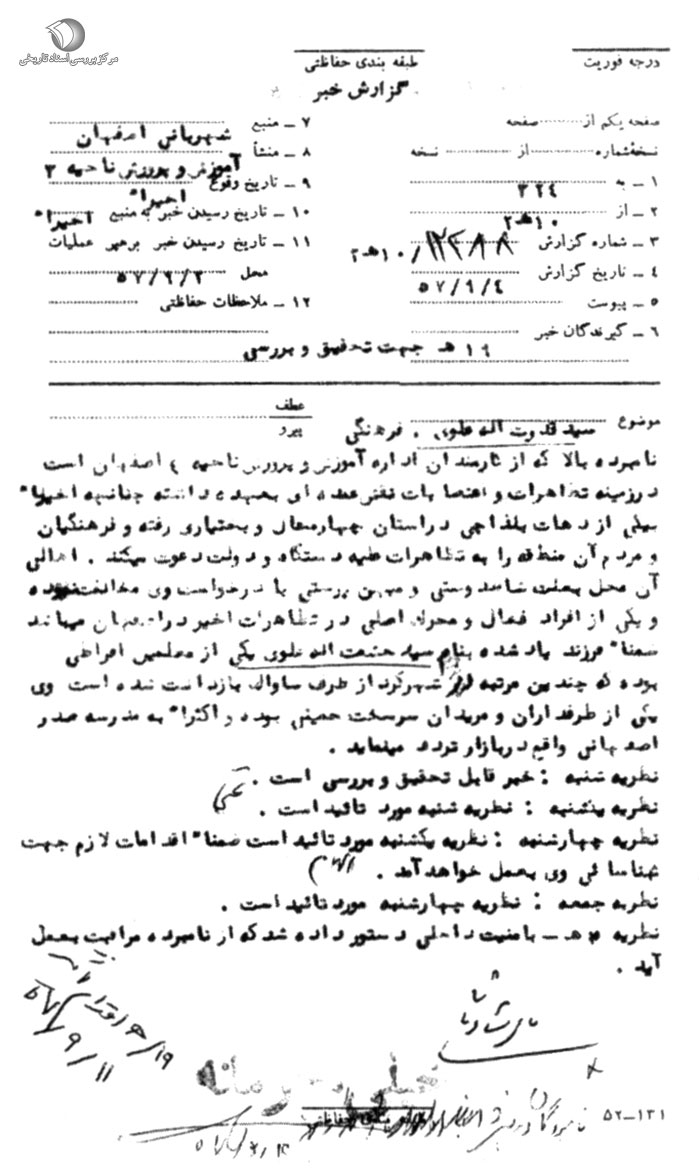 مرکز بررسی اسناد تاریخی
درجه فوریت
طبقه بندی حفاظتی
گزارش خبر
صفحه یکم از صفحه
نسخهٔ شماره از نسخه
۱ ـ به ۳۲۴
۲ ـ از ۱۰هـ۲
۳ ـ شماره گزارش ۱۰/۱۲۳۸۸هـ۲
۴ ـ تاریخ گزارش ۵۷/۹/۴
۵ ـ پیوست
۶ ـ گیرندگان خبر
۱۹ هـ جهت تحقیق و بررسی
۷ ـ منبع شهربانی اصفهان
۸ ـ منشأ آموزش و پرورش ناحیه ۳
۹ ـ تاریخ وقوع اخیراً
۱۰ ـ تاریخ رسیدن خبر به منبع اخیراً
۱۱ ـ تاریخ رسیدن خبر برهبر عملیات
محل ۵۷/۹/۲
۱۲ ـ ملاحظات حفاظتی
موضوع سید قدرت اله علوی . فرهنگی
عطف
پیرو
نامبرده بالا که از کارمندان اداره آموزش و پرورش ناحیه ٤ اصفهان است
در زمینه تظاهرات و اعتصابات نقش عمده ای بعهده داشته چنانچه اخیراً
بیکی از دهات بلداجی در استان چهارمحال و بختیاری رفته و فرهنگیان
و مردم آن منطقه را به تظاهرات علیه دستگاه و دولت دعوت میکند . اهالی
آن محل بعلت شاهدوستی و میهن پرستی با درخواست وی مخالفت نموده
و یکی از افراد فعال و محرک اصلی در تظاهرات اخیر در اصفهان میباشد
ضمناً فرزند یاد شده بنام سید حشمت اله علوی یکی از معلمین افراطی
بوده که چندین مرتبه در شهرکرد از طرف ساواک بازداشت شده است وی
یکی از طرفداران و مریدان سرسخت خمینی بوده و اکثراً به مدرسه صدر
اصفهانی واقع در بازار تردد مینماید .
نظریه شنبه : خبر قابل تحقیق و بررسی است .
نظریه یکشنبه : نظریه شنبه مورد تائید است .
نظریه چهارشنبه : نظریه یکشنبه مورد تائید است ضمناً اقدامات لازم جهت
شناسائی وی بعمل خواهد آمد .
نظریه جمعه : نظریه چهارشنبه مورد تائید است .
نظریه ۳ هـ ـ بامنیت داخلی دستور داده شد که از نامبرده مراقبت بعمل
آید .
۱۹/هـ اقدام
۵۷/۹/۱۱
۵۲ــ۱۳۱